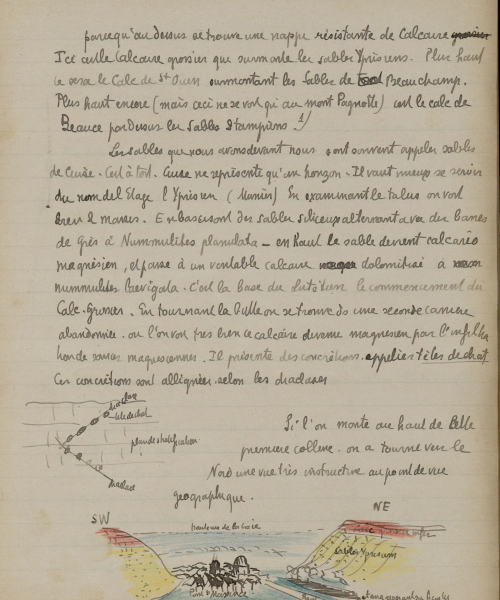 parcequ'au dessus se trouve une nappe résistante de Calcaire
Ici c'est le Calcaire grossier qui surmonte les sables Yprésiens. Plus haut
ce sera le Calc de St Ouen surmontant les Sables de Beauchamp.
Plus haut encore (mais ceci ne se voit qu'au mont Pagnotte) c'est le calc de
Beauce par dessus les Sables Stampiens 1)
Les sables que nous avons devant nous sont souvent appelés sables
de Cuise. C'est à tort. Cuise ne représente qu'un horizon. Il vaut mieux se servir
du nom de l'Etage l'Yprésien (Munier) En examinant le talus on voit
bien 2 masses. En bas ce sont des sables siliceux alternant avec des bancs
de grès à Nummulites planulata - en haut le sable devient calcaréo
magnésien, et passe à un véritable calcaire dolomitisé à
nummulites lævigata. C'est la base du Lutétien le commencement du
Calc. Grossier. En tournant la butte on se trouve ds une seconde carrière
abandonnée. où l'on voit très bien ce calcaire devenu magnésien par l'infiltra
tion de eaux magnésiennes. Il présente des concrétions appelées têtes de chat
Ces concrétions sont allignées selon les diaclases
diaclase
tête de chat
plan de stratification
diaclase
Si l'on monte au haut de cette
première colline on a tourné vers le
Nord une vue très instructive au point de vue
géographique.
SW
NE
hauteurs de
Calc grossier
sables Yprésiens
Pont Ste Maxence